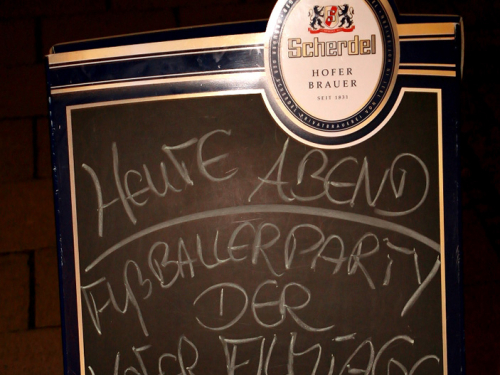 Scherdel
HOFER
BRAUER
SEIT 1831
HEUTE ABEND
FUßBALLERPARTY
DER
HOFER FILMTAGE